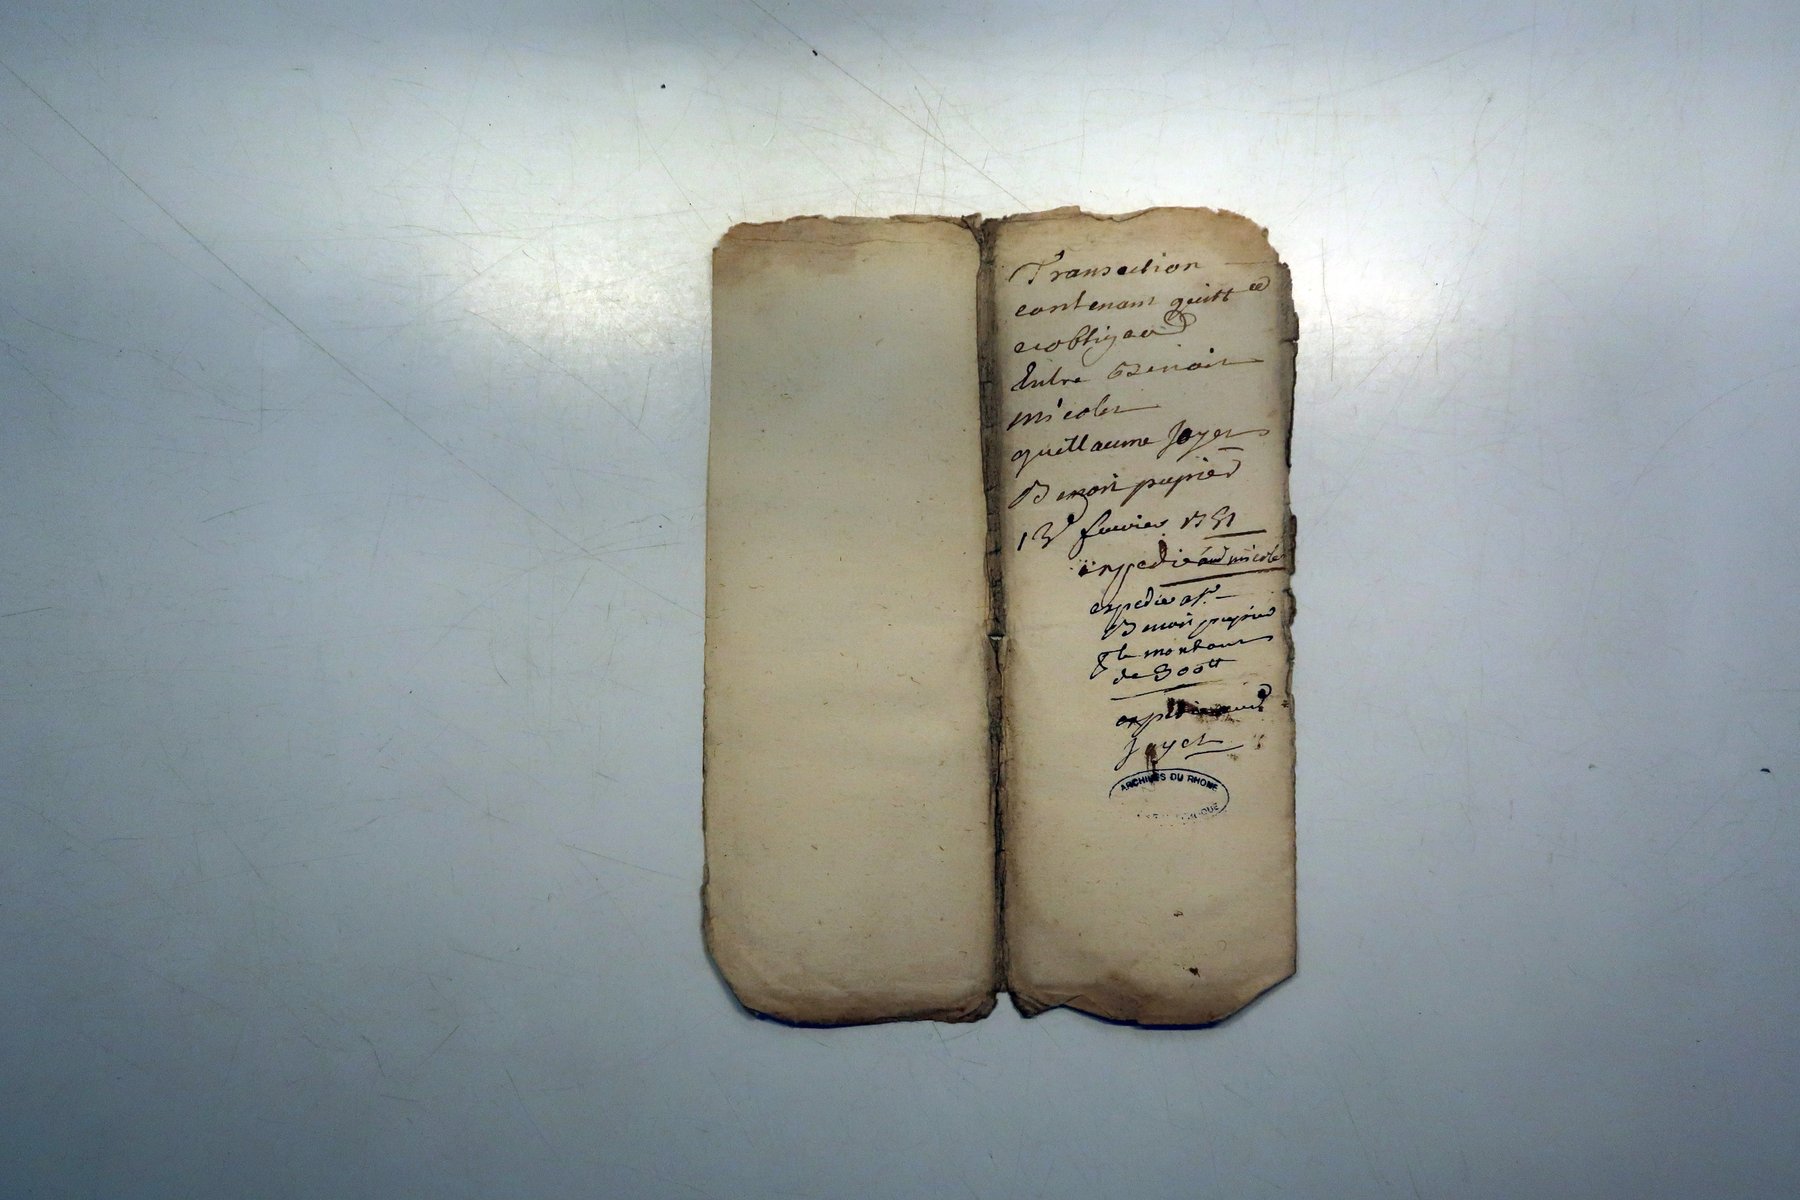 Transaction
contenant quittce
et obligaon
Entre Benoit
nicolet
guillaume Joyet
Benoit papier
13e fevrier 1751
expedié aud nicolet
expedié a sr
Benoit papier
le montant
de 300tt
expedié aud
Joyet
ARCHIVES DU RHONE